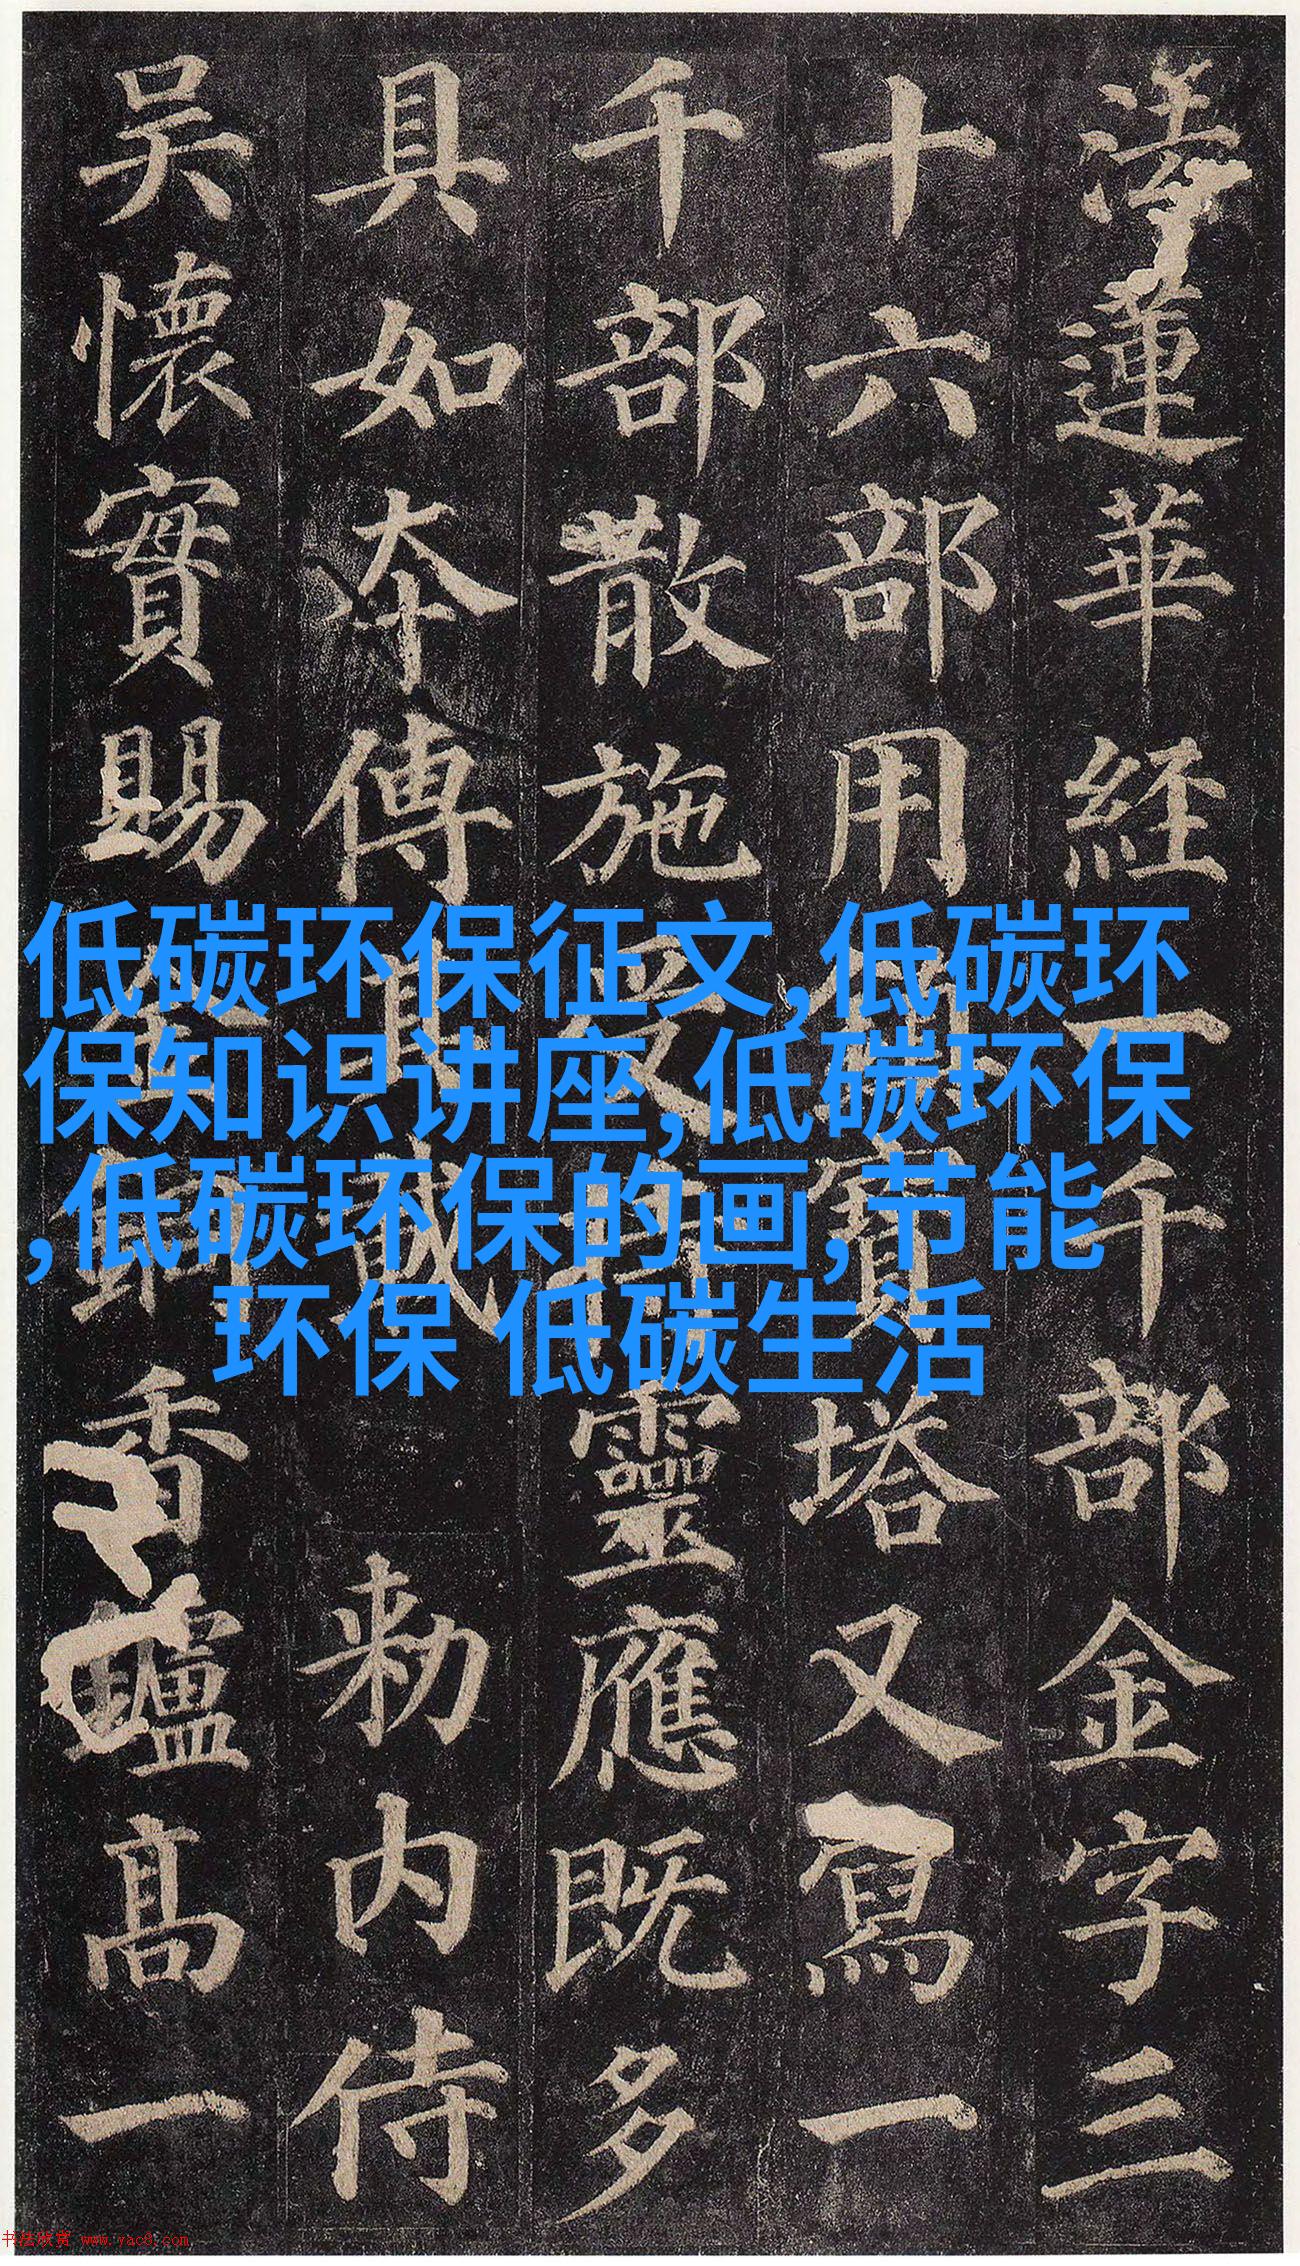 法蓮華經一千部金字三
十六部用寶塔又寫一
千部散施受靈應既多
具如本傳其載 敕内侍
吳懷實賜香爐高一
低碳环保征文,低碳环
保知识讲座,低碳环保
,低碳环保的画,节能
环保 低碳生活
书法欣赏 www.yac8.com